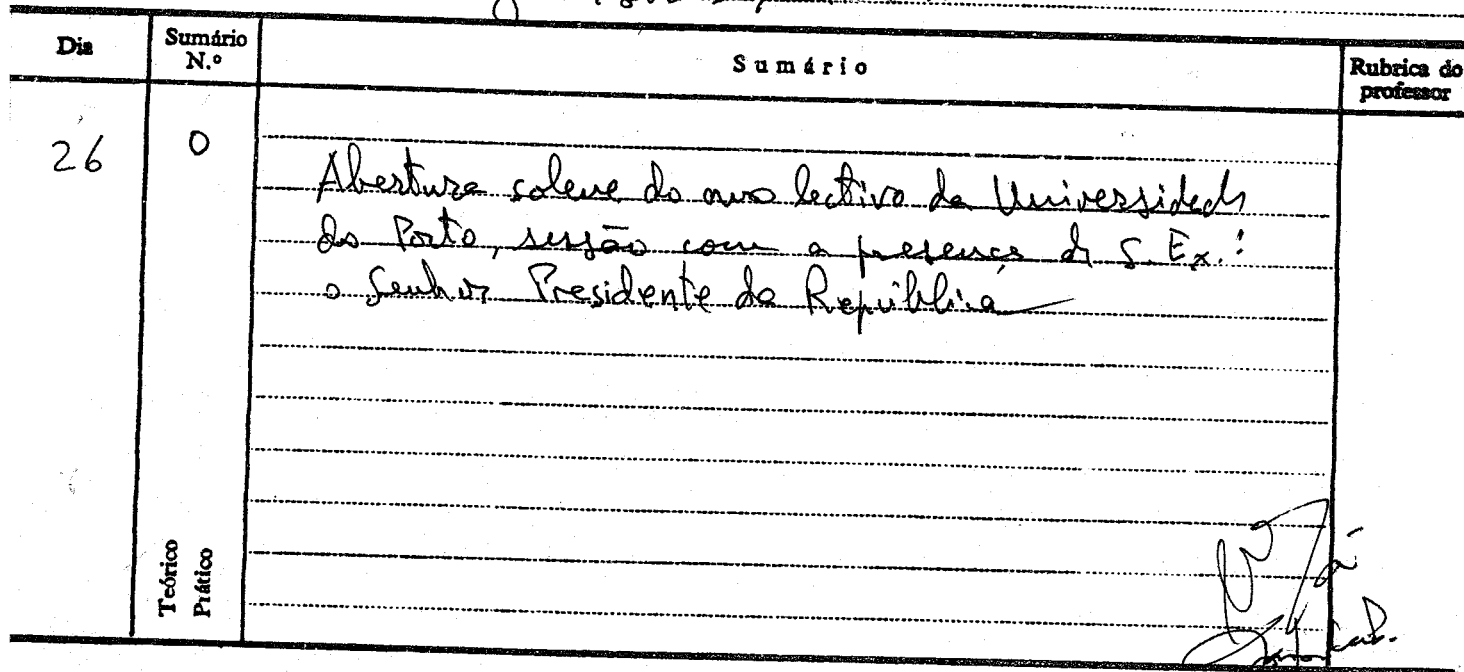 Dia
Sumário
N.º
Sumário
Rubrica do
professor
26
0
Abertura solene do ano lectivo da Universidade
do Porto, sessão com a presença de S. Ex.ª
o Senhor Presidente da República
Teórico
Prático